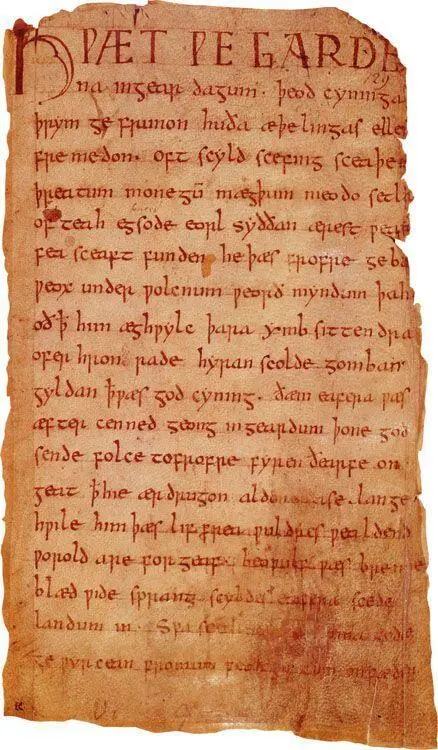 HǷÆT ǷE GARDE
na ingear dagum. þeod cyninga
þrym ge frunon huða æþelingas elle
fre medon. oft scyld scefing sceaþe
þreatum monegū mægþum meodo setla
of teah egsode eorl syððan ærest
fea sceaft funden he þæs frofre geba
ƿeox under ƿolcnum ƿeorð myndum þah
oð ꝥ him æghƿylc þara ymb sittendra
ofer hron rade hyran scolde gomban
gyldan ꝥ ƿæs god cyning. ðæm eafera ƿæs
æfter cenned geong in geardum þone god
sende folce tofrofre fyren ðearfe on
geat ꝥ hie ær drugon aldor ase. lange
hƿile him þæs lif frea ƿuldres ƿealdend
ƿorold are for geaf. beoƿulf ƿæs breme
blæd ƿide sprang scyldes eafera scede
landum in. Sƿa gode
ge ƿyrcean fromum feoh